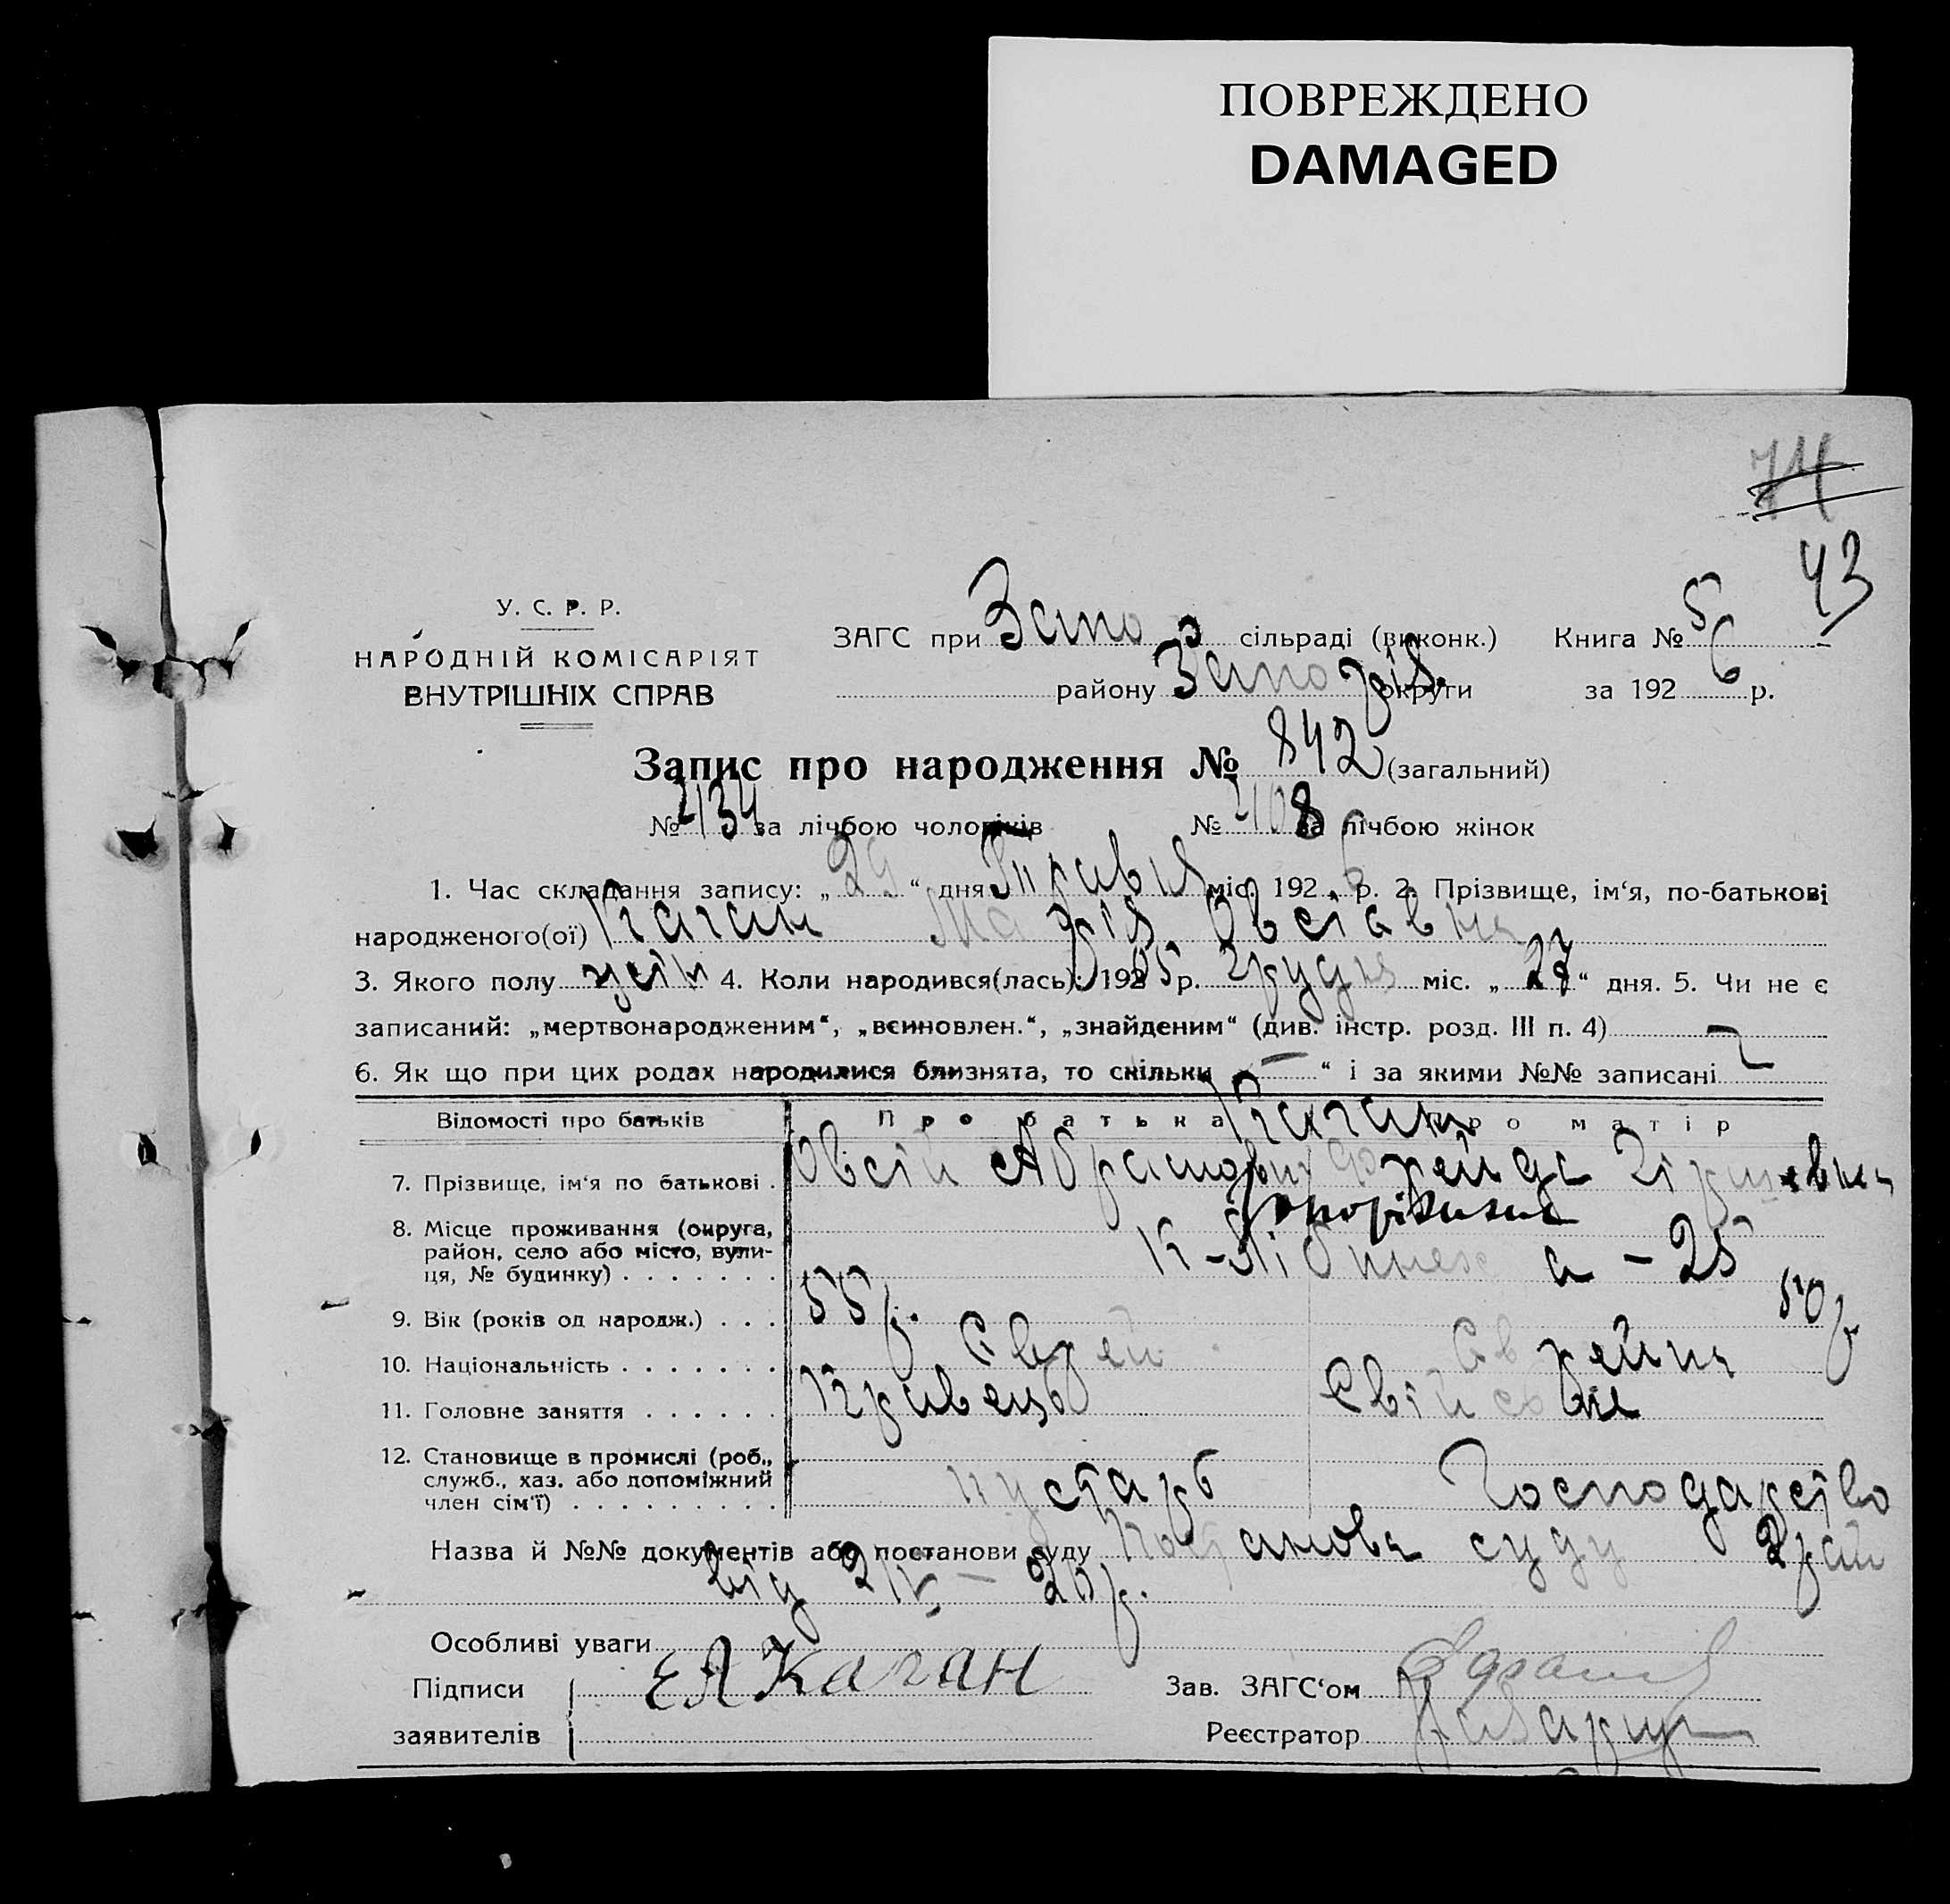 ПОВРЕЖДЕНО
DAMAGED
74
43
У. С. Р. Р.
НАРОДНІЙ КОМІСАРІЯТ
ВНУТРІШНІХ СПРАВ
ЗАГС при Запо сільраді (виконк.) Книга № 5
району Запоріз. округи за 1926 р.
Запис про народження № 842 (загальний)
№ 434 за лічбою чоловіків № 408 за лічбою жінок
1. Час складання запису: „29“ дня Травня міс. 1926 р. 2. Прізвище, ім‘я, по-батькові
народженого(ої) Каган Марія Овсіевна
3. Якого полу жін 4. Коли народився(лась): 1905 р. Грудня міс. „27“ дня. 5. Чи не є
записаний: „мертвонародженим“, „всиновлен.“, „знайденим“ (див. інстр. розд. III п. 4) —
6. Як що при цих родах народилися близнята, то скільки „—“ і за якими №№ записані —
Відомості про батьків Про батька Про матір
Каган
7. Прізвище, ім‘я по батькові . Овсій Абрамович Фрейда Гіршевна
8. Місце проживання (округа, район, село або місто, вулиця, № будинку) . . . . . . . Запоріжжя
К-Лібкнехта - 25
9. Вік (років од народж.) . . . 55 р. 50 р
10. Національність . . . . . . . Єврей Єврейка
11. Головне заняття . . . . . . Кравець Свійське
12. Становище в промислі (роб., служб., хаз. або допоміжний член сім‘ї) . . . . . . . . . кустарь Господарство
Назва й №№ документів або постанови суду Постанова суду 2 рай
від 2/IV — 26 р.
Особливі уваги
Підписи заявителів ЕА Каган
Зав. ЗАГС‘ом
Реєстратор